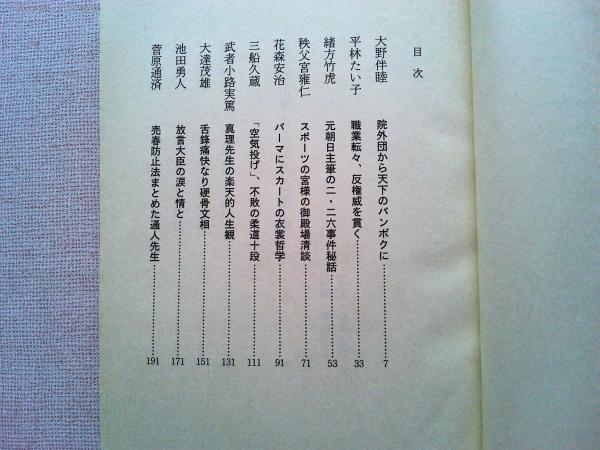 目次
大野伴睦 院外団から天下のバンボクに…………7
平林たい子 職業転々、反権威を貫く…………33
緒方竹虎 元朝日主筆の二・二六事件秘話…………53
秩父宮雍仁 スポーツの宮様の御殿場清談…………71
花森安治 パーマにスカートの衣裳哲学…………91
三船久蔵 「空気投げ」、不敗の柔道十段…………111
武者小路実篤 真理先生の楽天的人生観…………131
大達茂雄 舌鋒痛快なり硬骨文相…………151
池田勇人 放言大臣の涙と情と…………171
菅原通済 売春防止法まとめた通人先生…………191